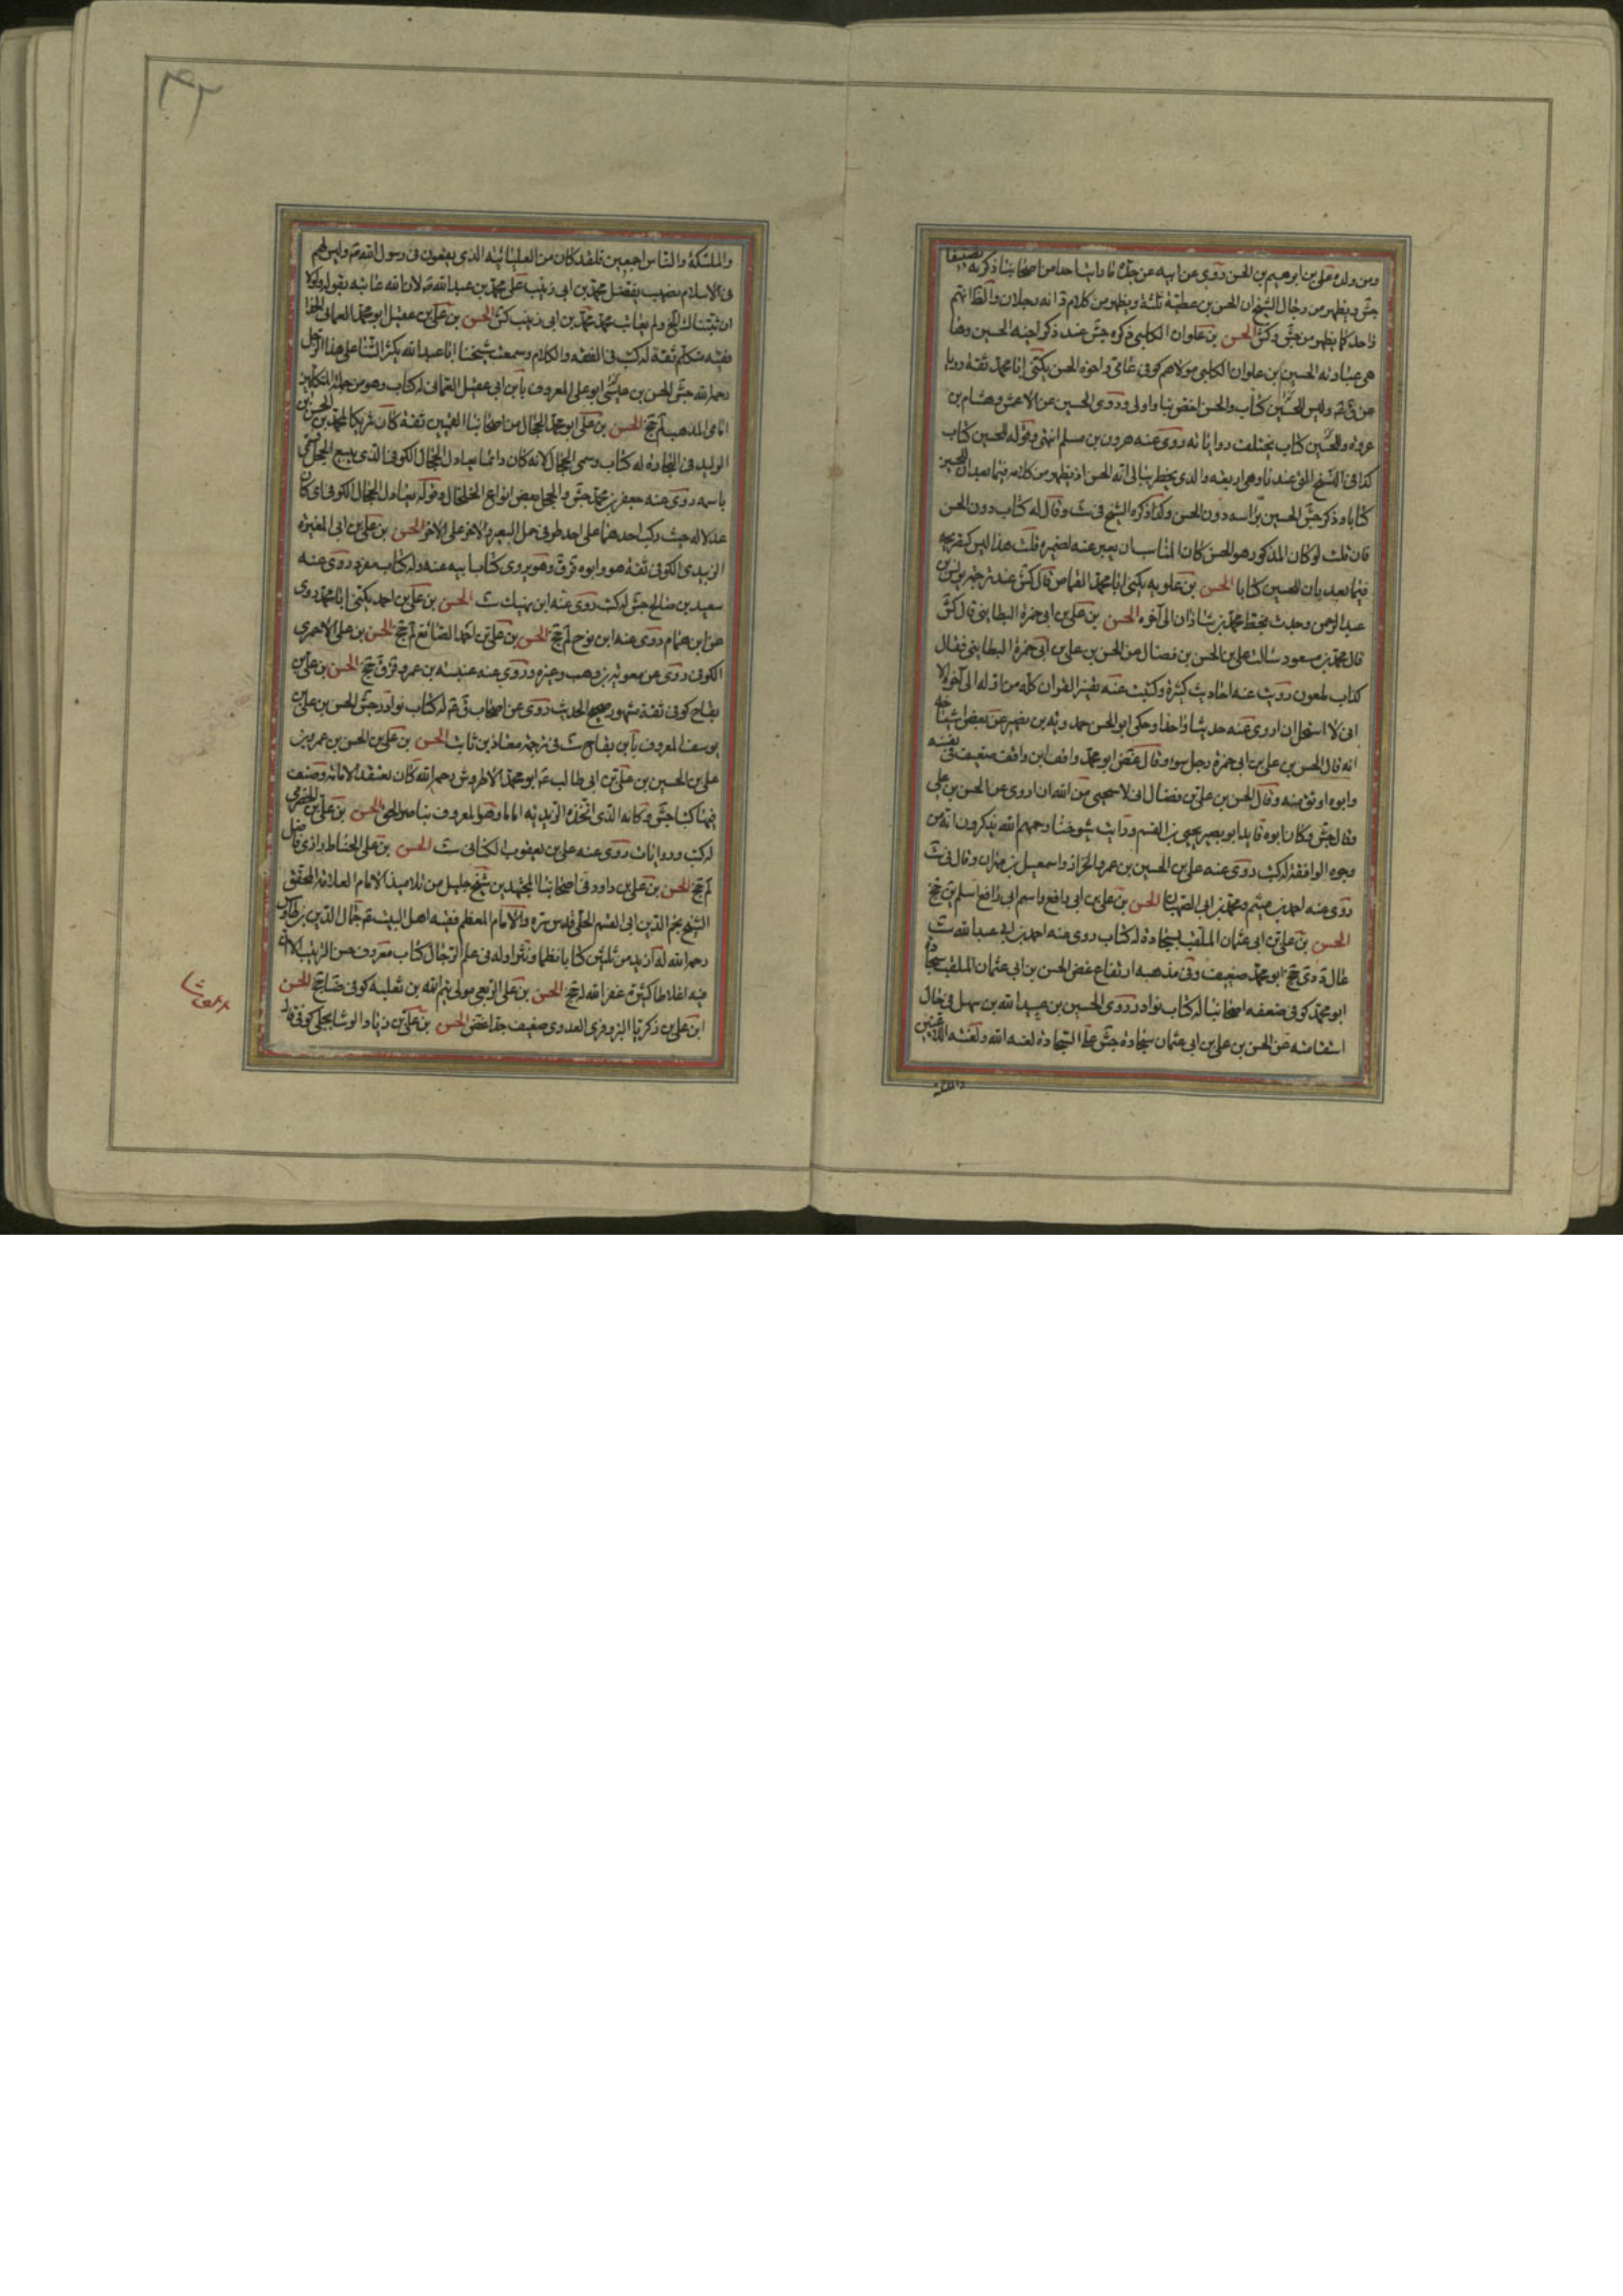 ومن ولده علي بن ابرهيم بن الحسن روى عن ابيه عن جده ما رايت احدا من اصحابنا ذكر له تصنيفا
جش ويظهر من رجال الشيخ ان الحسن بن عطية ثلثة ويظهر من كلام انه رجلان والظ انهم
واحد كما يظهر من جش وكش الحسن بن علوان الكلبي ذكره جش عند ذكر اخيه الحسين وهذا
هي عبارته الحسين بن علوان الكلبي مولاهم كوفي عامي واخوه الحسن يكنى ابا محمد ثقة رويا
عن ق وليس للحسين كتاب والحسن اخص بنا واولى وروى الحسين عن الاعمش وهشام بن
عروة وللحسين كتاب تختلف رواياته روى عنه هرون بن مسلم انتهى وقوله للحسين كتاب
كذا في النسخ التي عندنا وهي اربعة والذي يخطر ببالي انه الحسن اذ يظهر من كلامه فيما بعد ان للحسين
كتابا وذكر جش الحسين براسه دون الحسن وكذا ذكره الشيخ في ست وقال له كتاب دون الحسن
فان قلت لو كان المذكور هو الحسن كان المناسب ان يعبر عنه لضميره قلت هذا ليس كتصريحه
فيما بعد بان للحسين كتابا الحسن بن علويه يكنى ابا محمد القماص قال كش عند ترجمة يونس بن
عبد الرحمن وجدت بخط محمد بن شاذان الى آخره الحسن بن علي بن ابي حمزة البطايني قال كش
قال محمد بن مسعود سالت علي بن الحسن بن فضال عن الحسن بن علي بن ابي حمزة البطايني فقال
كذاب ملعون رويت عنه احاديث كثيرة وكتبت عنه تفسير القران كله من اوله الى آخره الا
اني لا استحل ان اروى عنه حديثا واحدا وحكى ابو الحسن حمدويه بن نصير عن بعض اشياخه
انه قال الحسن بن علي بن ابي حمزة رجل سوء وقال غض ابو محمد واقف ابن واقف ضعيف في نفسه
وابوه اوثق منه وقال الحسن بن علي بن فضال اني لاستحيي من الله ان اروى عن الحسن بن علي
وقال جش وكان ابوه قايد ابو بصير يحيى بن القسم ورايت شيوخنا رحمهم الله يذكرون انه من
وجوه الواقفة له كتب روى عنه علي بن الحسين بن عمرو الخزاز واسمعيل بن مهران وقال في ست
روى عنه احمد بن ميثم ومحمد بن ابي الصهبان الحسن بن علي بن ابي رافع واسم ابي رافع اسلم ين جخ
الحسن بن علي بن ابي عثمان الملقب بسجادة له كتاب روى عنه احمد بن ابي عبد الله ست
غال دي جخ ابو محمد ضعيف وفي مذهبه ارتفاع غض الحسن بن ابي عثمان الملقب سجادة
ابو محمد كوفي ضعفه اصحابنا له كتاب نوادر روى الحسين بن عبيد الله بن سهل في حال
استقامته عن الحسن بن علي بن ابي عثمان سجادة جش على السجادة لعنه الله ولعنه اللاعنين
والملئكة
٤٢
والملئكة والناس اجمعين فلقد كان من العليائية الذي يقعون في رسول الله ص وليس لهم
في الاسلام نصيب بفضل محمد بن ابي زينب على محمد بن عبد الله ص لان الله عاتبه بقوله ولولا
ان ثبتناك الخ ولم يعاتب محمد بن ابي زينب كش الحسن بن علي بن عقيل ابو محمد العماني الحذا
فقيه متكلم ثقة له كتب في الفقه والكلام وسمعت شيخنا ابا عبد الله يكثر الثنا على هذا الرجل
رحمه الله جش الحسن بن عيسى ابو علي المعروف بابن ابي عقيل العماني له كتاب وهو من جملة المتكلمين
امامي المذهب لم جخ الحسن بن علي ابو محمد الحجال من اصحابنا القميين ثقة كان شريكا لمحمد بن الحسن بن
الوليد في التجارة له كتاب وسمى الحجال لانه كان دائما يعادل الحجال الكوفي الذي يبيع الحجل فسمى
باسمه روى عنه جعفر بن محمد جش والحجل بعض انواع الخلخال وقوله يعادل الحجال الكوفي اي كان
عدلا له حيث ركب احدهما على احد طرفي حمل البعير والاخر على الاخر الحسن بن علي بن ابي المغيرة
الزبيدي الكوفي ثقة هو وابوه قر ق وهو يروي كتاب ابيه عنه وله كتاب مفرد روى عنه
سعيد بن صالح جش له كتب روى عنه ابن نهيك ست الحسن بن علي بن احمد يكنى ابا محمد روى
عن ابن همام روى عنه ابن نوح لم جخ الحسن بن علي بن احمد الصائغ لم جخ الحسن بن علي الاحمري
الكوفي روى عن معوية بن وهب وغيره وروى عنه عنبسة بن عمرو قر ق جخ الحسن بن علي بن
بقاح كوفي ثقة مشهور صحيح الحديث روى عن اصحاب ق له كتاب نوادر جش الحسن بن علي بن
يوسف المعروف بابن بقاح ست في ترجمة معاذ بن ثابت الحسن بن علي بن الحسن بن عمر بن
علي بن الحسين بن علي بن ابي طالب ع ابو محمد الاطروش رحمه الله كان يعتقد الامامة وصنف
فيها كتبا جش وكانه الذي اتخذه الزيدية اماما وهو المعروف بناصر الحق الحسن بن علي بن الحضرمي
له كتب وروايات روى عنه علي بن يعقوب الكناني ست الحسن بن علي الحناط رازي فاضل
لم جخ الحسن بن علي بن داود في اصحابنا المجتهدين شيخ جليل من تلاميذ الامام العلامة المحقق
الشيخ نجم الدين ابي القسم الحلي قدس سره والامام المعظم فقيه اهل البيت جمال الدين بن طاوس
رحمه الله له ازيد من ثلثين كتابا نظما ونثرا وله في علم الرجال كتاب معروف حسن الترتيب الا ان
فيه اغلاطا كثيرة غفر الله له جخ الحسن بن علي الربعي مولى تيم الله بن ثعلبة كوفي جخ الحسن
ابن علي بن زكريا البزوفري العدوي ضعيف جدا غض الحسن بن علي بن زياد الوشا بجلي كوفي قال